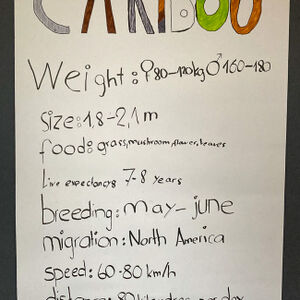 CARIBOU
Weight:♀80-120kg ♂160-180
Size:1,8-2,1m
food: grass,mushroom,flower,leaves
Live expectancy: 7-8 years
breeding: may-june
migration: North America
speed: 60-80 km/h
distance: 80 per day